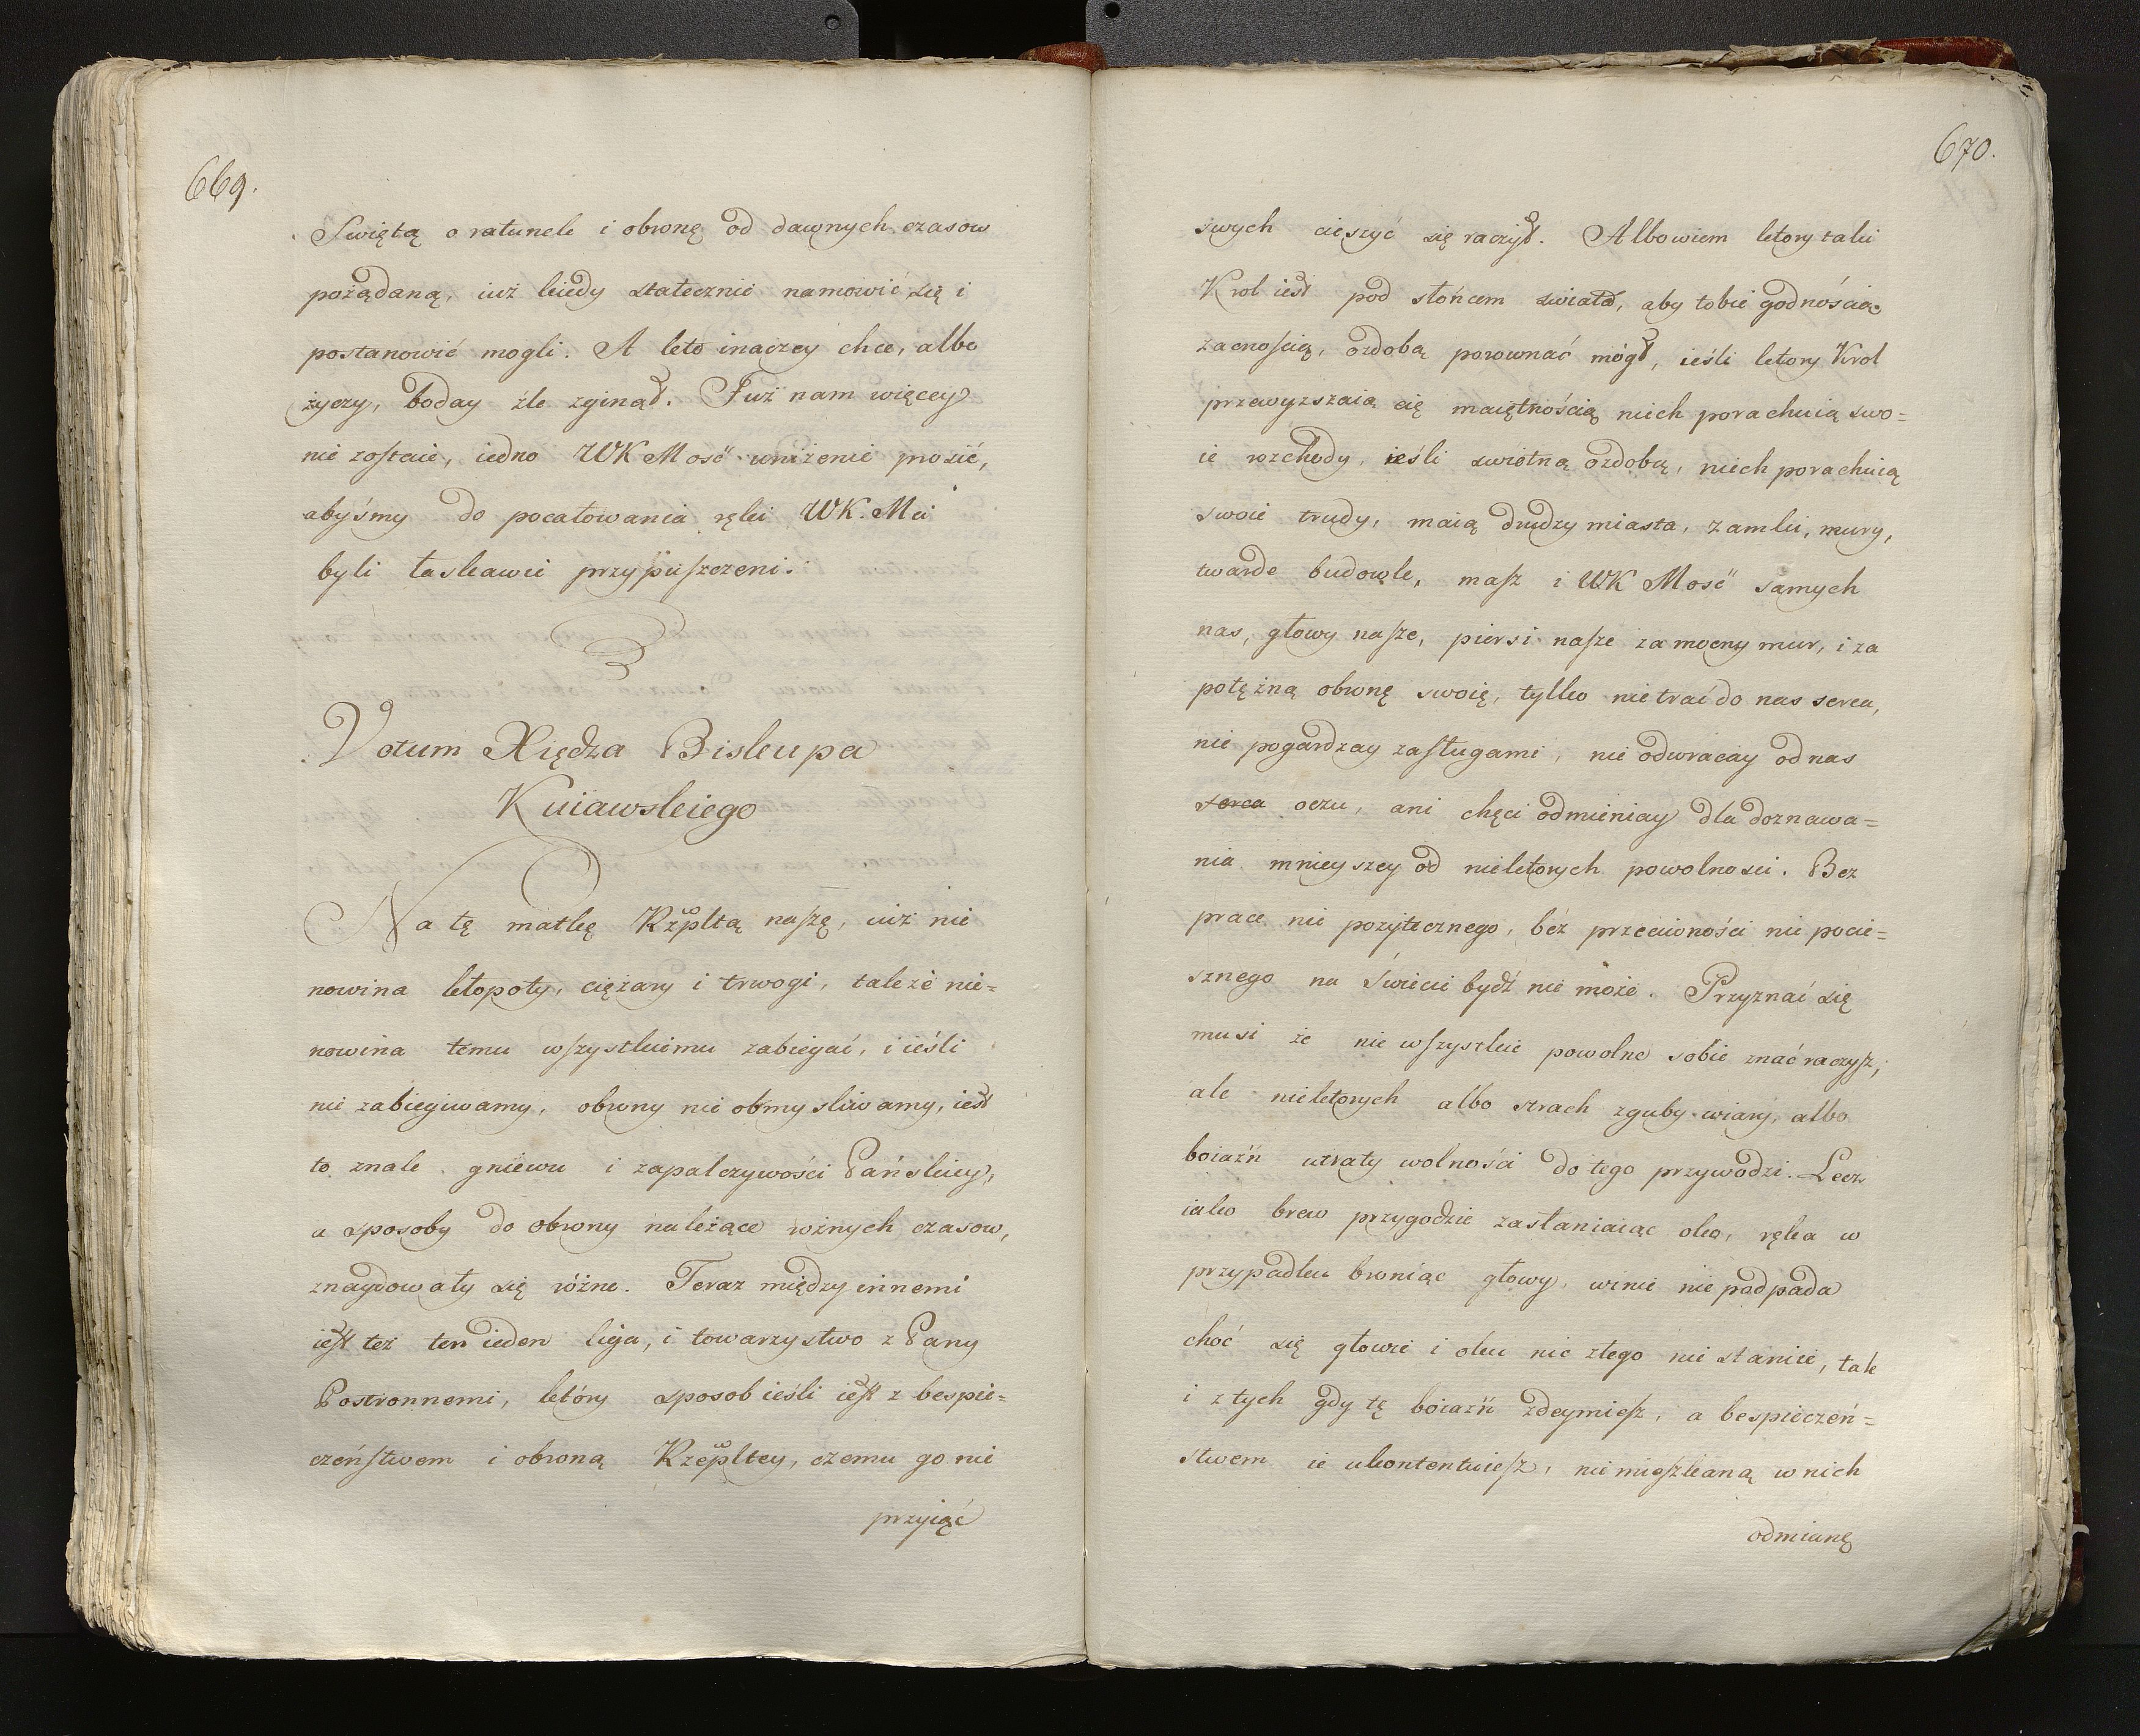 669.
Swiętą o ratunek i obronę od dawnych czasow
pożądaną, iuż kiedy statecznie namowić się i
postanowić mogli. A kto inaczey chce, albo
życzy, boday źle zginął. Już nam więcey
nie zostaie, iedno WK Mość uniżenie prosić,
abyśmy do pocałowania ręki WK. Mci
byli łaskawie przypuszczeni.
Votum Xiędza Biskupa
Kuiawskiego
Na tę matkę Rzpltą naszę, iuż nie
nowina kłopoty, ciężary i trwogi, także nie=
nowina temu wszystkiemu zabiegać, i ieśli
nie zabiegiwamy, obrony nie obmysliwamy, iest
to znak gniewu i zapalczywości Pańskiey,
a sposoby do obrony należące rożnych czasow,
znaydowały się różne. Teraz między innemi
iest też ten ieden liga, i towarzystwo z Pany
Postronnemi, który sposob ieśli iest z bespie=
czeństwem i obroną Rzepltey, czemu go nie
przyiąć
670.
swych cieszyć się raczył. Albowiem ktory taki
Krol iest pod słońcem swiata, aby tobie godnością
zacnością, ozdobą porownać mógł, ieśli ktory Krol
przewyzszaią cię maiętnością niech porachuią swo=
ie rozchody, ieśli swietną ozdobą, niech porachuią
swoie trudy, maią drudzy miasta, zamki, mury,
twarde budowle, masz i WK Mość samych
nas, głowy nasze, piersi nasze za mocny mur, i za
potężną obronę swoię, tylko nie trać do nas serca,
nie pogardzay zasługami, nie odwracay od nas
serca oczu, ani chęci odmieniay dla doznawa=
nia mnieyszey od niektorych powolnosci. Bez
prace nic pozytecznego, bez przeciwności nic pocie=
sznego na Świecie bydź nie może. Przyznać się
musi że nie wszyszkie powolne sobie znać raczysz,
ale niektorych albo strach zguby wiary, albo
boiaźń utraty wolności do tego przywodzi. Lecz
iako brew przygodzie zasłaniaiąc oko, ręka w
przypadku broniąc głowy, winie nie podpada
choć się głowie i oku nic złego nie stanie, tak
i z tych gdy tę boiazń zdeymiesz, a bespieczeń=
stwem ie ukontentuiesz, nie mieszkaną w nich
odmianę